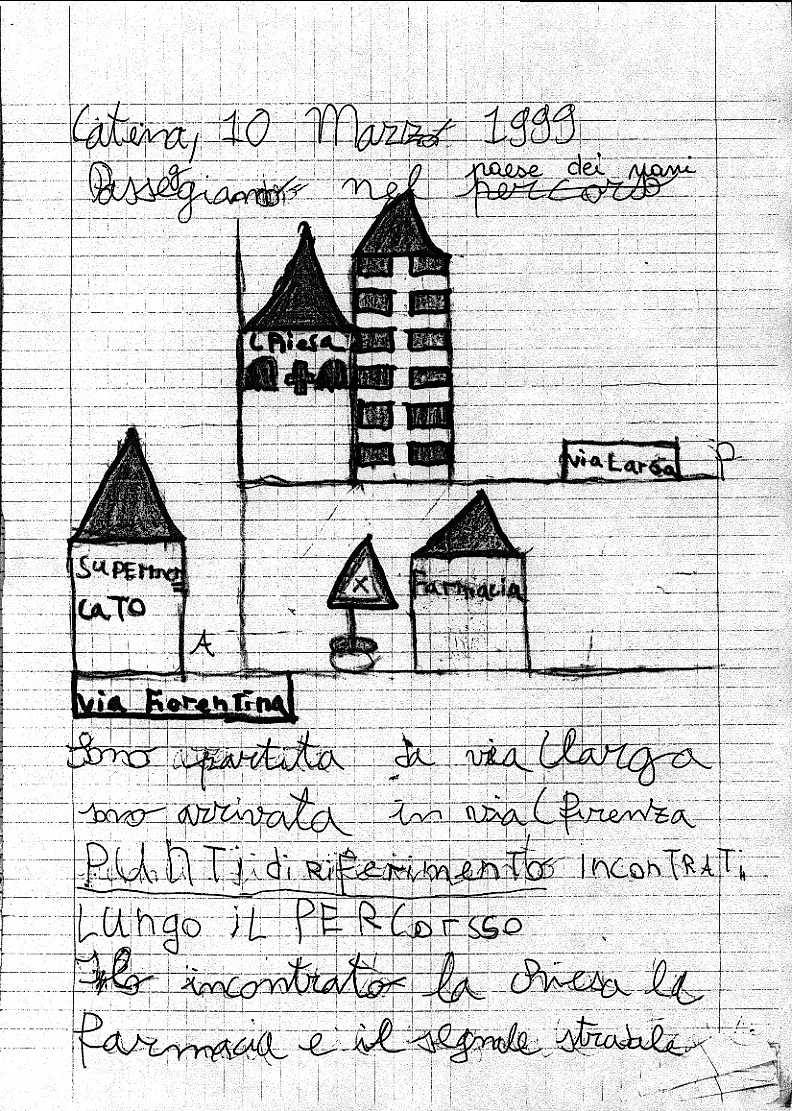 Catena, 10 Marzo 1999
Passegiando nel percorso
paese dei nani
Chiesa
via Larga
P
SUPERmer
CATO
Farmacia
X
A
via Fiorentina
Sono partita da via Larga
sono arrivata in via Firenza
PUNTI di riferimento INConTRATi
LUNgo iL PERCorsso
Ho incontrato la chiesa la
farmacia e il segnale stradale